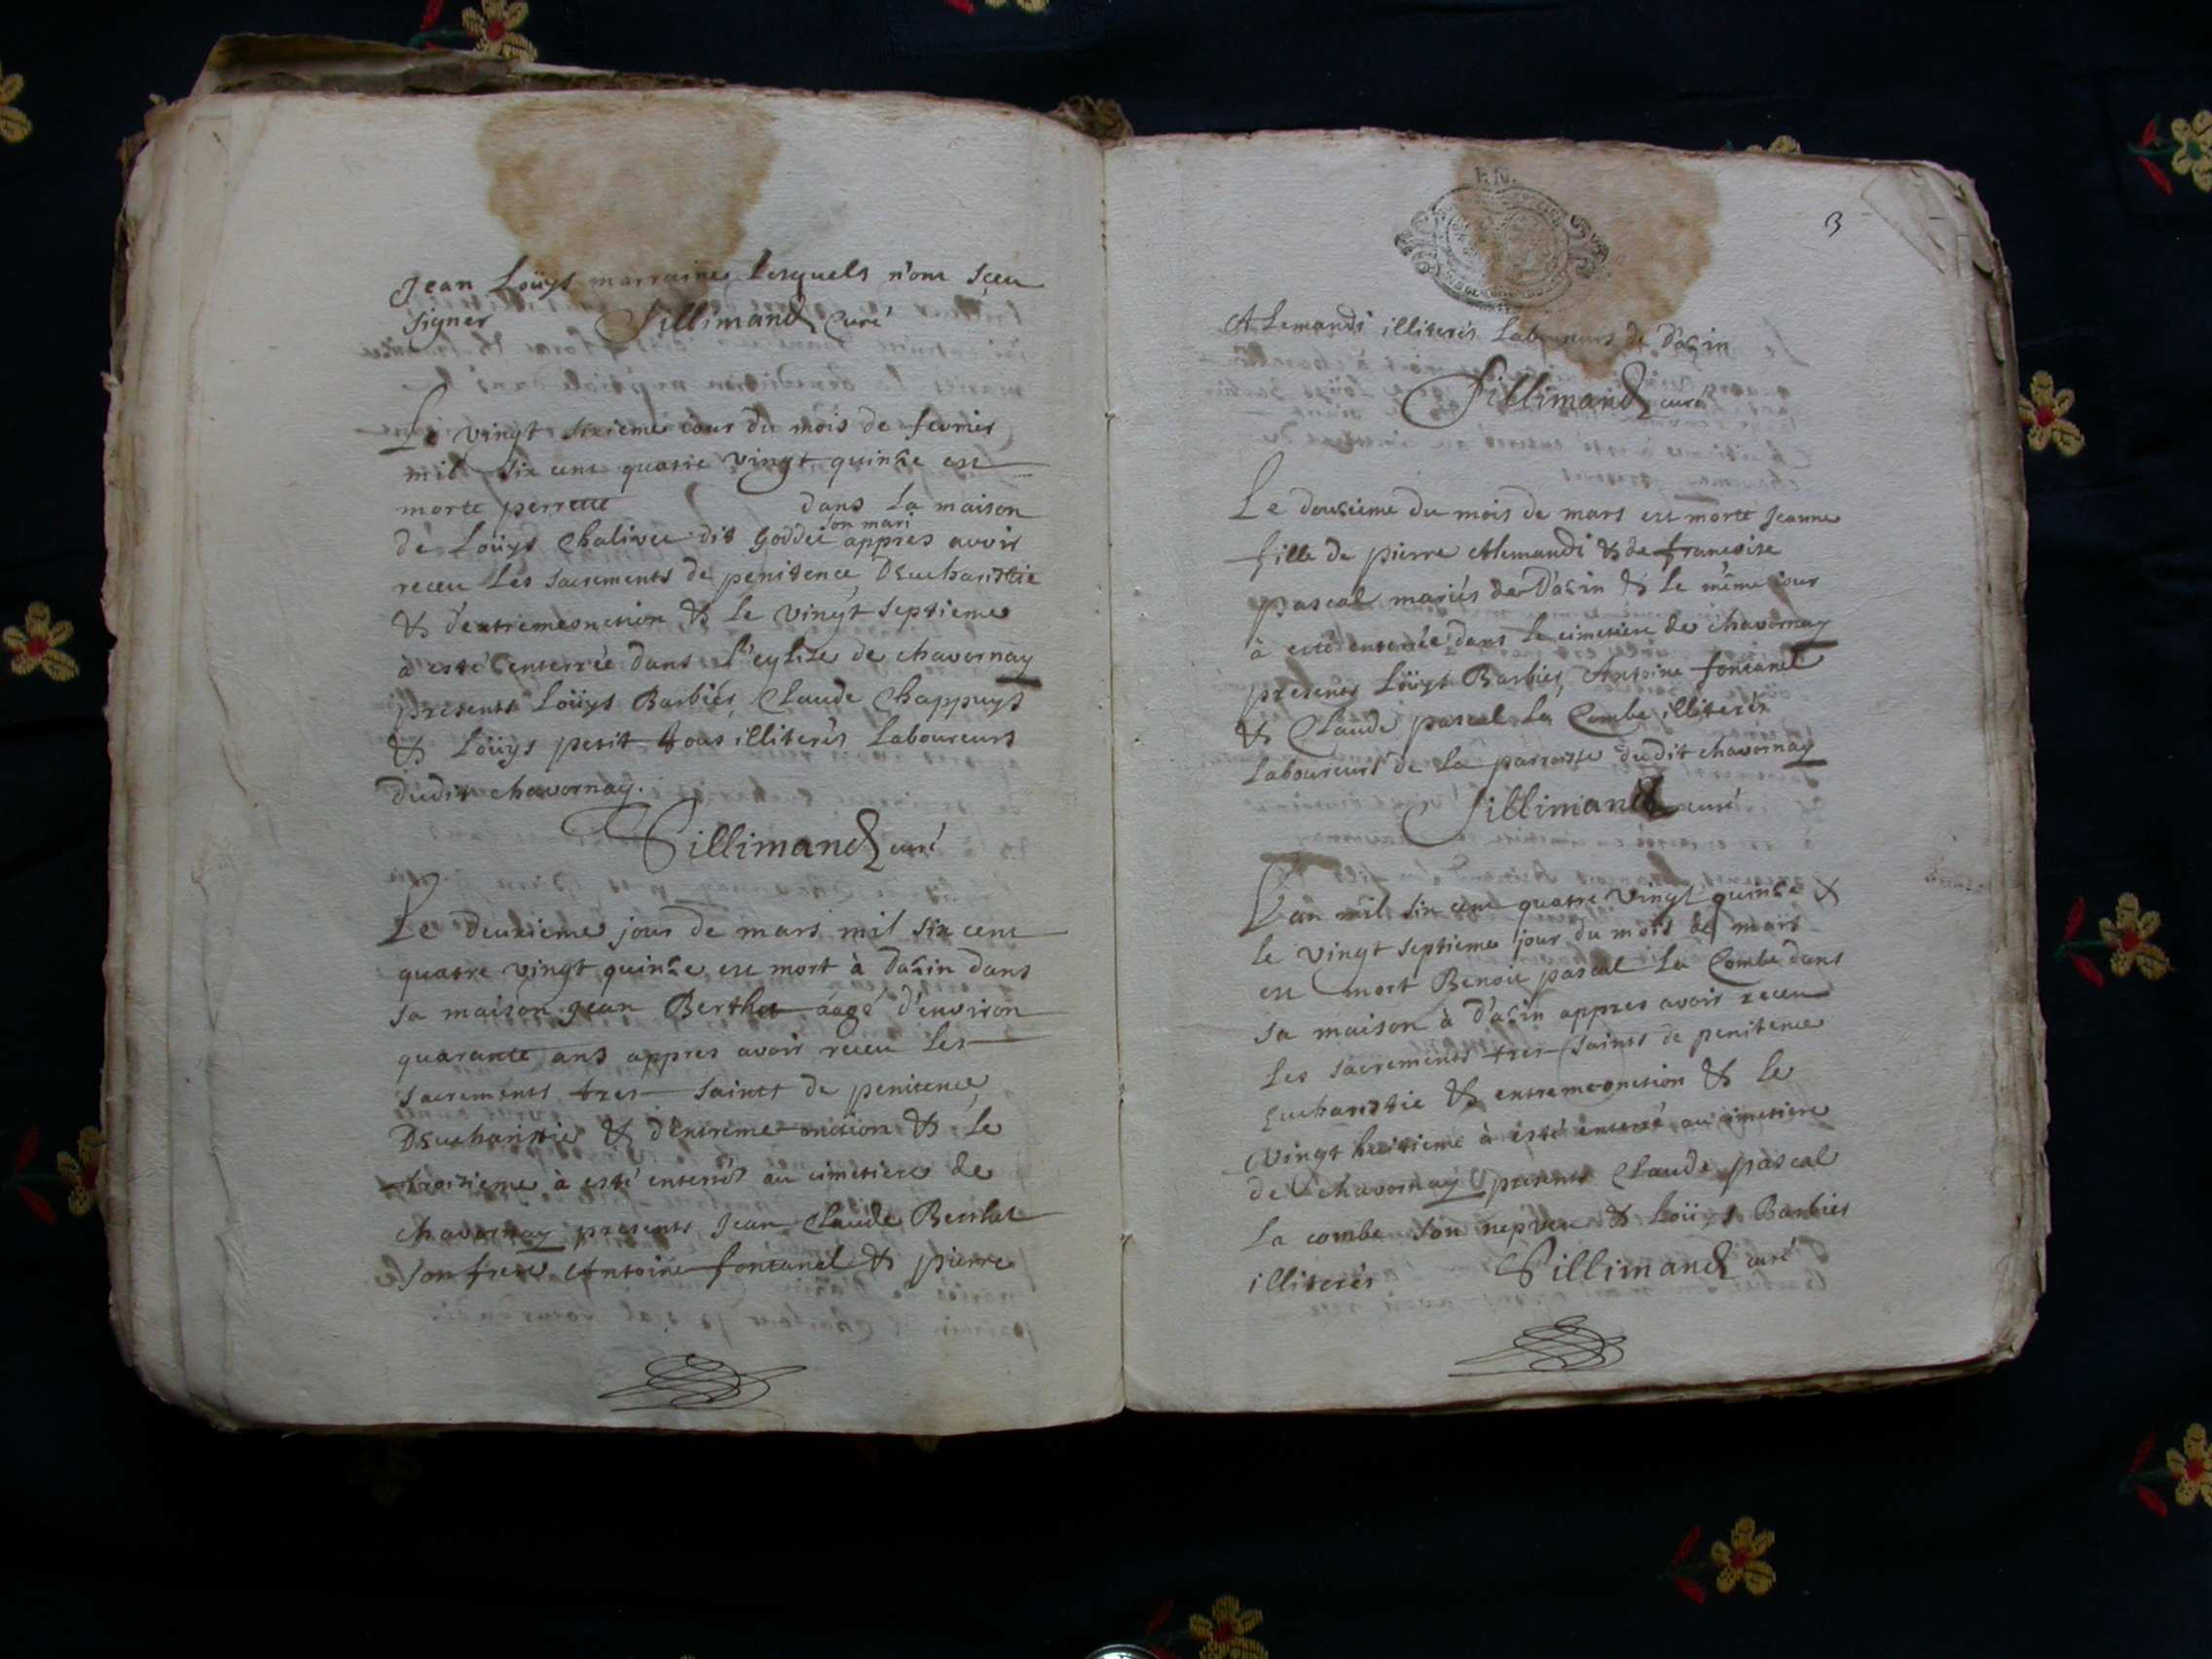 Jean Loüys marraine lesquels n'ont sçeu
signer Sillimand Curé
Le vingt sixieme iour du mois de fevrier
mil six cent quatre vingt quinze est
morte perrette dans la maison
son mari
de Loüys Chalivee dit Goddet appres avoir
receu Les sacrements de penitence, DEucharistie
& d'extremeonction & Le vingt septieme
à esté enterrée dans l'eglize de chavornay
presents Loüys Barbier, Claude Chappuys
& Loüys petit tous illiterés Laboureurs
dudit chavornay.
Sillimand curé
Le deuxieme jour de mars mil six cent
quatre vingt quinze est mort à Dazin dans
sa maison Jean Berthet aagé d'environ
quarante ans appres avoir receu Les
sacrements tres saints de penitence,
DEucharistie & d'extreme onction & Le
troisieme à esté enterré au cimetiere de
chavornay presents Jean Claude Berthet
son frere Antoine fontanel & pierre
3
Alemandi illiterés Laboureurs de Dazin
Sillimand curé
Le douzieme du mois de mars est morte Jeanne
fille de pierre Alemandi & de francoise
pascal mariés de Dazin & Le même iour
à esté enterrée dans Le cimetiere de chavornay
presents Loüys Barbier, Antoine fontanel
& Claude pascal La Combe illiterés
Laboureurs de La parroisse dudit chavornay
Sillimand curé
L'an mil six cent quatre vingt quinze &
le vingt septieme jour du mois de mars
est mort Benoit pascal La Combe dans
sa maison à Dazin appres avoir receu
Les sacrements tres saints de penitence
Eucharistie & extreme-onction & Le
vingt huitieme à esté enterré au cimetiere
de chavornay presents Claude pascal
La combe son nepveu & Loüys Barbier
illiterés Sillimand curé